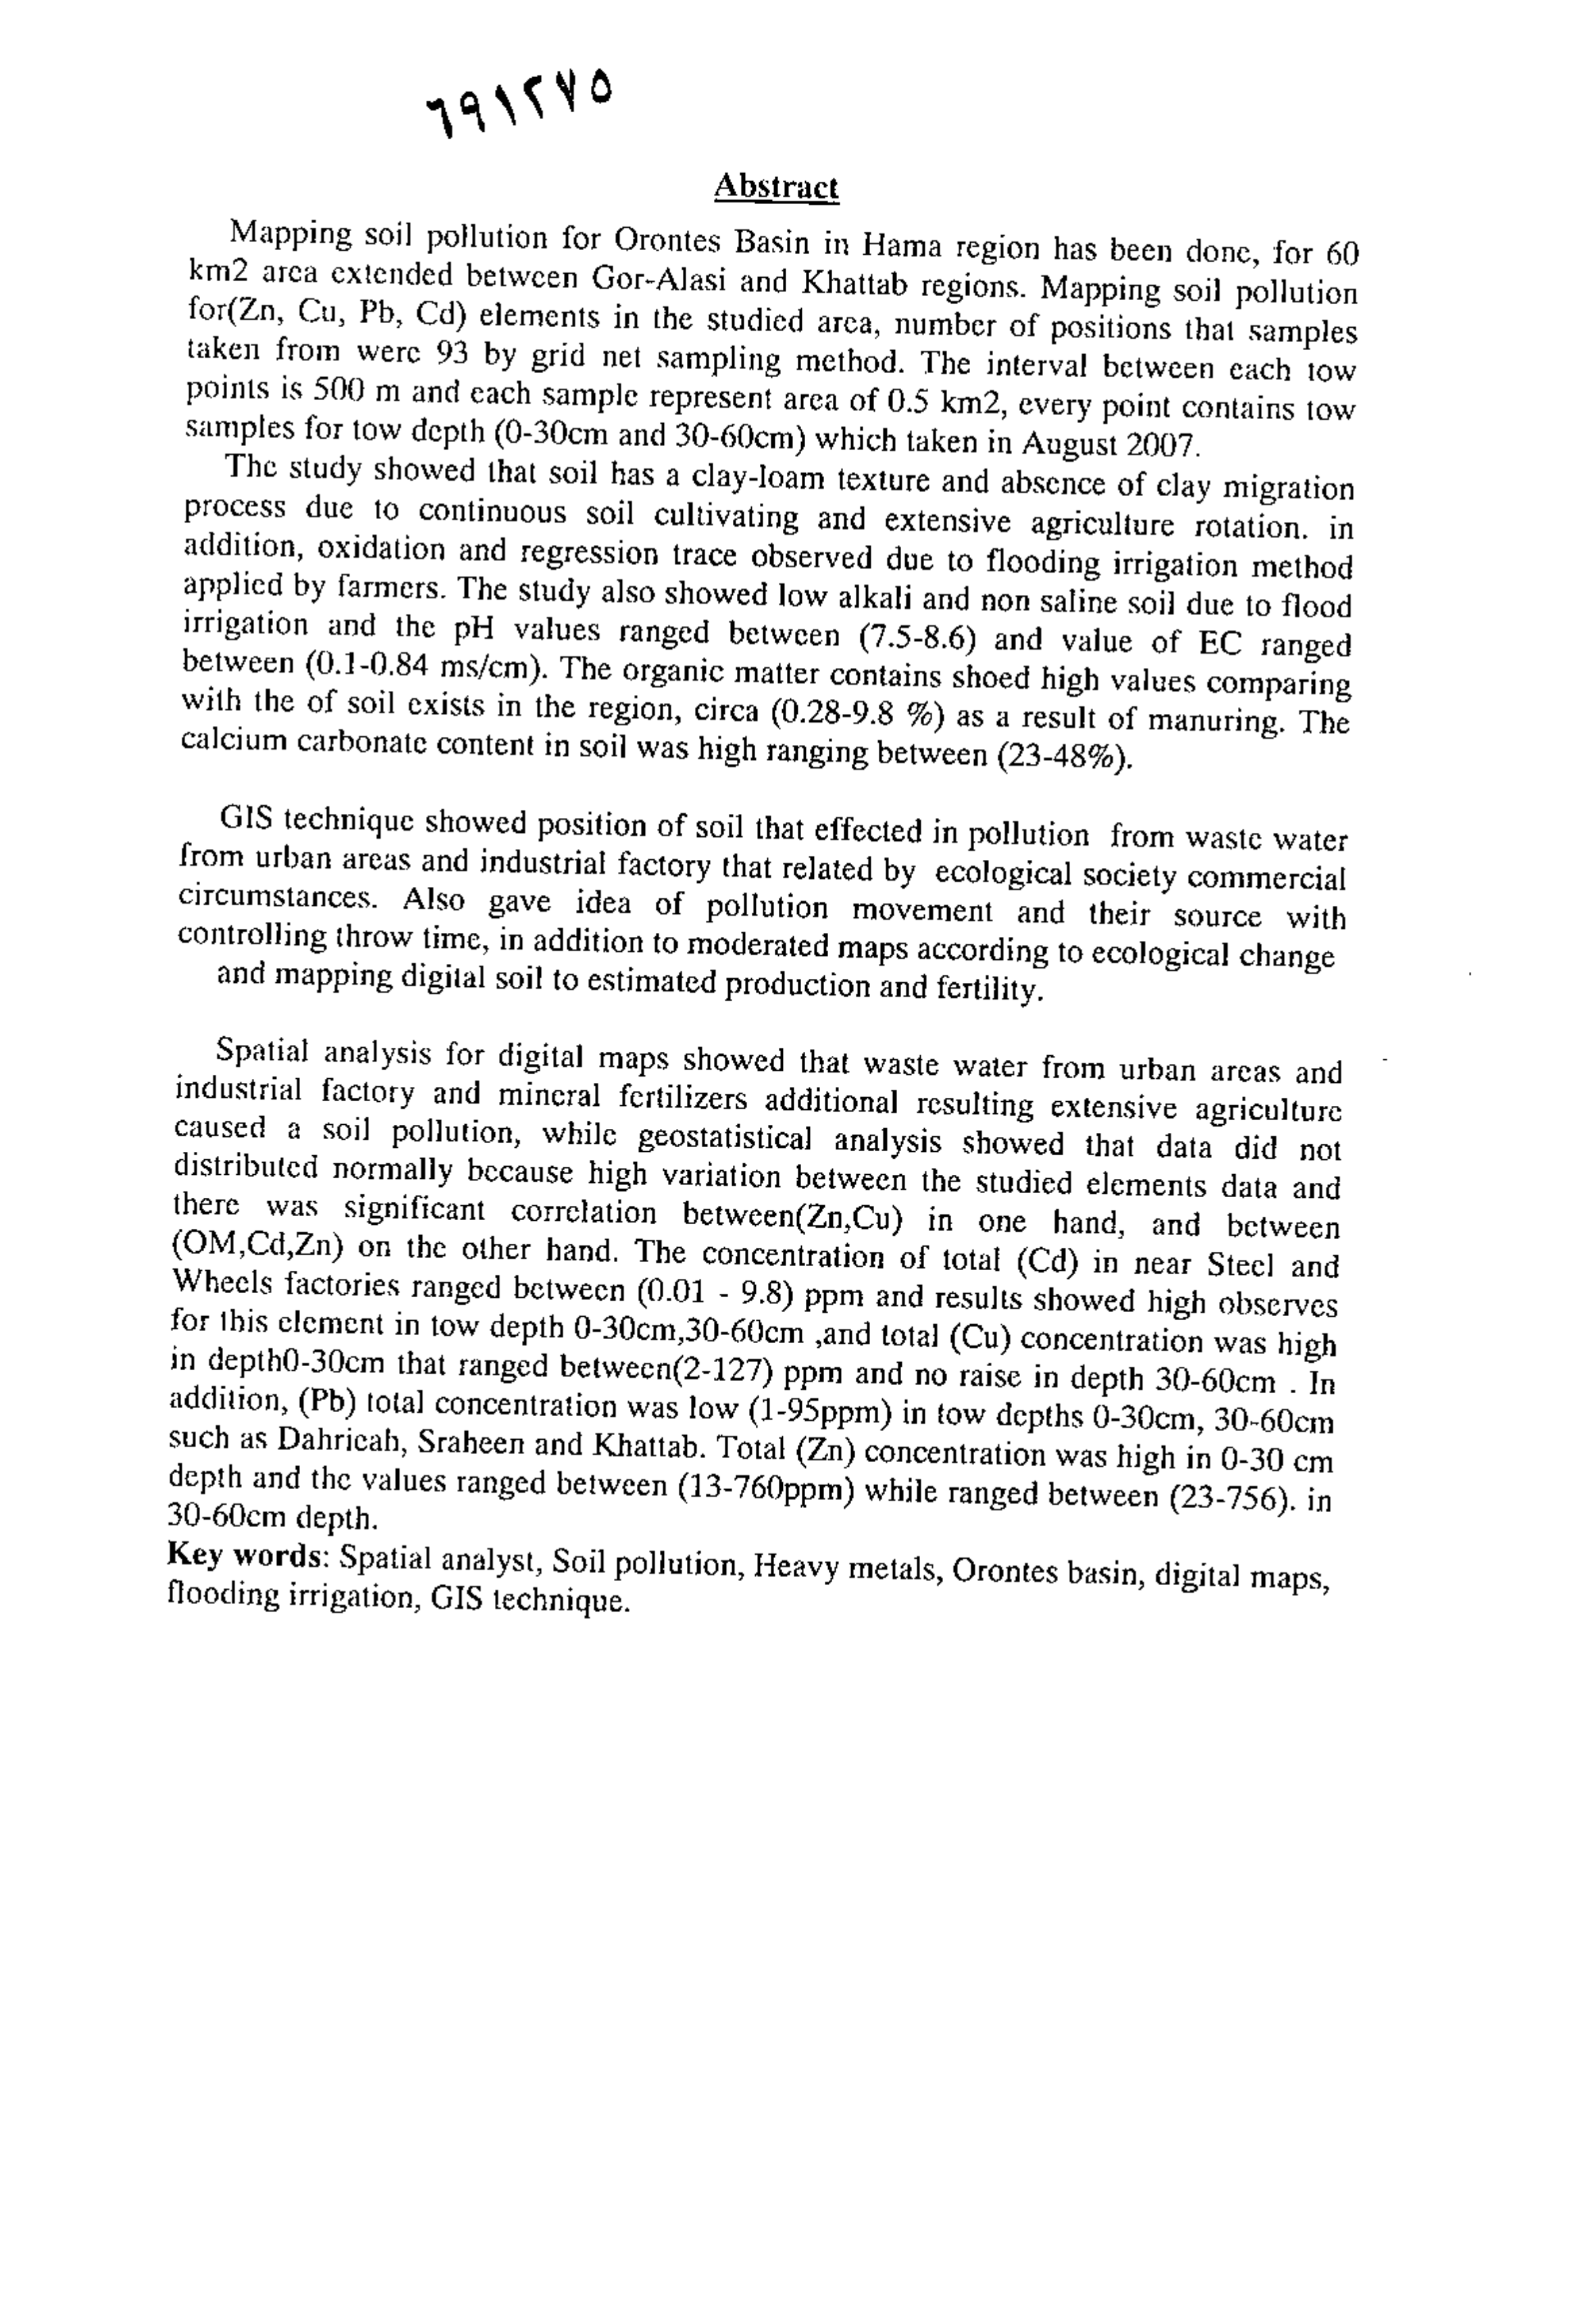 ٦٩١٢٧٥
Abstract
Mapping soil pollution for Orontes Basin in Hama region has been done, for 60
km2 area extended between Gor-Alasi and Khattab regions. Mapping soil pollution
for(Zn, Cu, Pb, Cd) elements in the studied area, number of positions that samples
taken from were 93 by grid net sampling method. The interval between each tow
points is 500 m and each sample represent area of 0.5 km2, every point contains tow
samples for tow depth (0-30cm and 30-60cm) which taken in August 2007.
The study showed that soil has a clay-loam texture and absence of clay migration
process due to continuous soil cultivating and extensive agriculture rotation. in
addition, oxidation and regression trace observed due to flooding irrigation method
applied by farmers. The study also showed low alkali and non saline soil due to flood
irrigation and the pH values ranged between (7.5-8.6) and value of EC ranged
between (0.1-0.84 ms/cm). The organic matter contains shoed high values comparing
with the of soil exists in the region, circa (0.28-9.8 %) as a result of manuring. The
calcium carbonate content in soil was high ranging between (23-48%).
GIS technique showed position of soil that effected in pollution from waste water
from urban areas and industrial factory that related by ecological society commercial
circumstances. Also gave idea of pollution movement and their source with
controlling throw time, in addition to moderated maps according to ecological change
and mapping digital soil to estimated production and fertility.
Spatial analysis for digital maps showed that waste water from urban areas and
industrial factory and mineral fertilizers additional resulting extensive agriculture
caused a soil pollution, while geostatistical analysis showed that data did not
distributed normally because high variation between the studied elements data and
there was significant correlation between(Zn,Cu) in one hand, and between
(OM,Cd,Zn) on the other hand. The concentration of total (Cd) in near Steel and
Wheels factories ranged between (0.01 - 9.8) ppm and results showed high observes
for this element in tow depth 0-30cm,30-60cm ,and total (Cu) concentration was high
in depth0-30cm that ranged between(2-127) ppm and no raise in depth 30-60cm . In
addition, (Pb) total concentration was low (1-95ppm) in tow depths 0-30cm, 30-60cm
such as Dahrieah, Sraheen and Khattab. Total (Zn) concentration was high in 0-30 cm
depth and the values ranged between (13-760ppm) while ranged between (23-756). in
30-60cm depth.
Key words: Spatial analyst, Soil pollution, Heavy metals, Orontes basin, digital maps,
flooding irrigation, GIS technique.